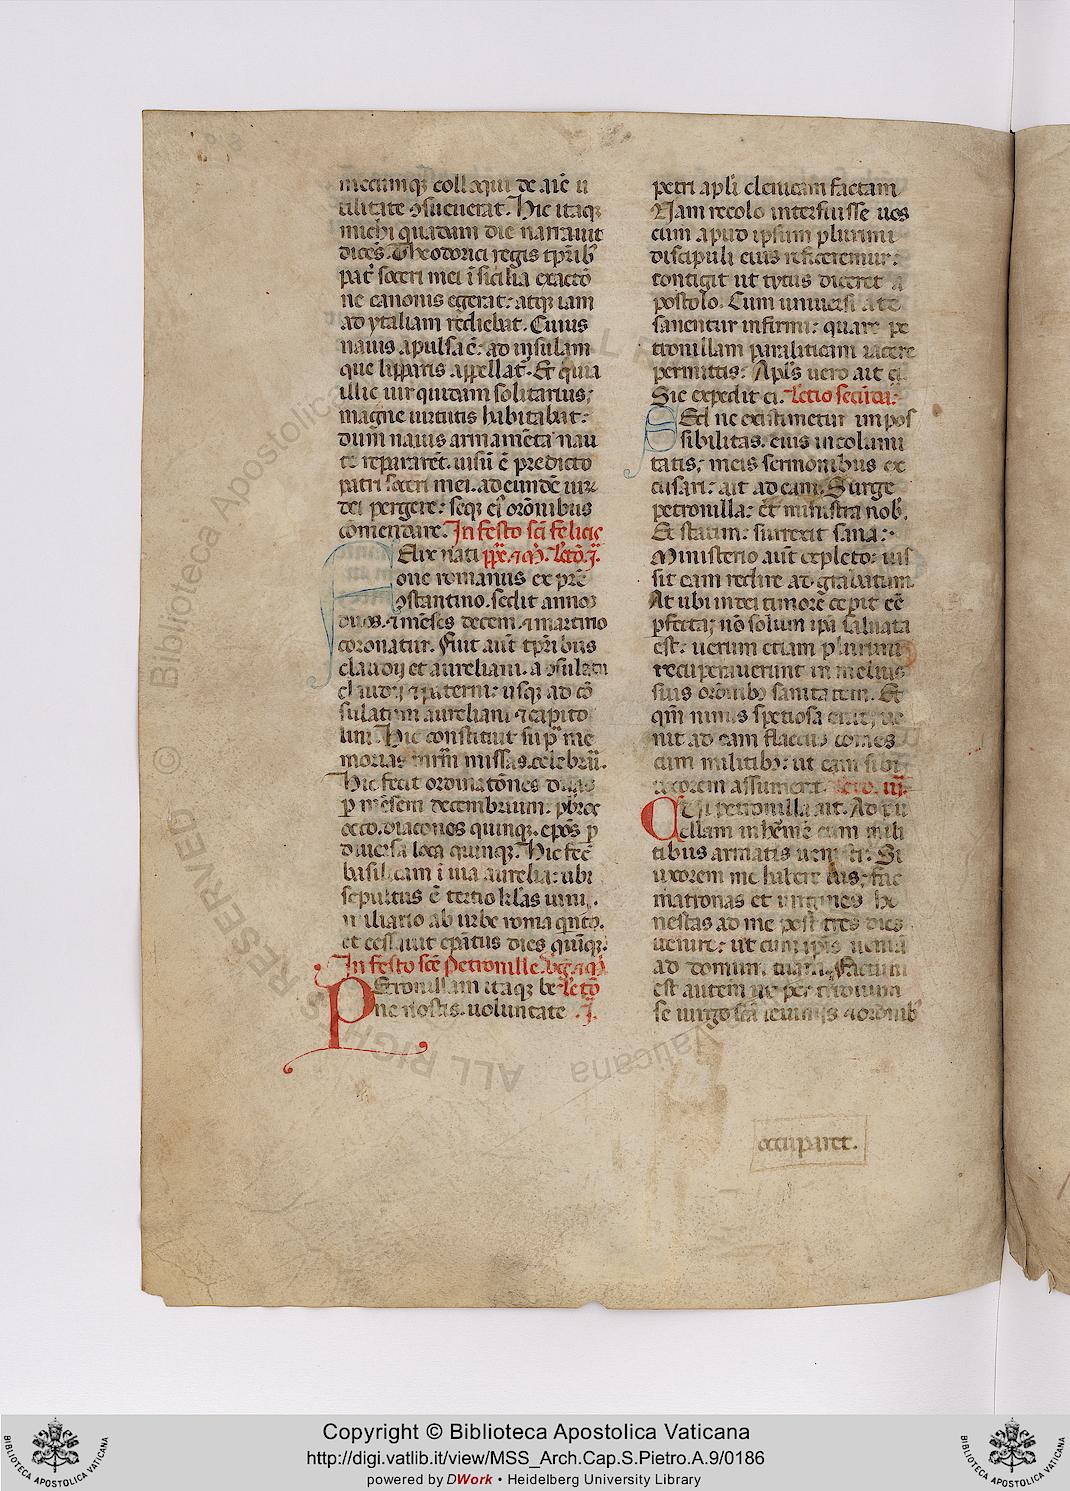 mecumq; colloqui de aīe u
tilitate ꝯsueuerat. Hic itaq;
michi quadam die narrauit
dicēs. Theodorici regis tp̄rib;
pat̄ soceri mei ī sicilia exactō
ne canonis egerat: atq; iam
ad ytaliam rediebat. Cuius
nauis apulsa ē: ad insulam
que lipparis appellat̄. Et quia
illic uir quidam solitarius;
magne uirtutis habitabat:
dum nauis armamēta nau
te repararēt. uisū ē predicto
patri soceri mei. ad eundē uirꝝ
dei pergere: seq; eī orōnibus
cōmendare. In festo scī felicis
FElix nati pp̄e. ⁊ m̄. Lectō. j̄.
one romanus ex prē
ꝯstantino. sedit annos
duos. ⁊ mēses decem. ⁊ martirio
coronatur. Fuit aūt tp̄ribus
claudij et aureliani. a ꝯsulatu
claudij ⁊ paterni: usq; ad cō
sulatum aureliani ⁊ capito
lini. Hic constituit sup̄ me
morias mr̄m missas celebrari.
Hic fecit ordinatōnes duas
p̄ mēsem decembrium. pb̄ros
octo. diaconos quinq;. epōs p̄
diuersa loca quinq;. Hic fec̄
basilicam ī uia aurelia: ubi
sepultus ē tertio kl̄as iunij.
miliario ab urbe roma quīto.
et cessauit epātus dies quīq;.
In festo scē Petronille. ūḡ. ⁊ m̄.
PEtronillam itaq; be Lectō
ne nostis. uoluntate .j.
petri apl̄i clenicam factam
Nam recolo interfuisse uos
cum apud ipsum plurimi
discipuli eius reficeremur:
contigit ut tytus diceret a
postolo. Cum uniuersi a te
sanentur infirmi: quare pe
tronillam paraliticam iacere
permittis: Apl̄s uero ait ei.
Sic expedit ei. Lectio secūda.
SEd ne existimetur impos
sibilitas. eius incolumi
tatis; meis sermonibus ex
cusari: ait ad eam. Surge
petronilla: et ministra nob̄.
Et statim: surrexit sana:
Ministerio aūt expleto: ius
sit eam redire ad grabatum.
At ubi in dei timorē cepit eē
p̄fecta; nō solum ipā saluata
est: uerum etiam plurimi
recuperauerunt in melius
suis orōnibꝫ sanitatem. Et
qm̄ nimis spetiosa erat; ue
nit ad eam flaccus comes
cum militibꝫ: ut eam sibi
uxorem assumeret. Lectō. iij.
Cui petronilla ait. Ad pu
ellam inhermē cum mili
tibus armatis uenisti: Si
uxorem me habere uis; fac
matronas et uirgines ho
nestas ad me post tres dies
uenire: ut cum ip̄is ueniā
ad domum tuam. Factum
est autem ut per triduum
se uirgo scā ieiuniis ⁊ orōnib;
occuparet.
ALL RIGHTS RESERVED © Biblioteca Apostolica Vaticana
Copyright © Biblioteca Apostolica Vaticana
http://digi.vatlib.it/view/MSS_Arch.Cap.S.Pietro.A.9/0186
powered by DWork • Heidelberg University Library
BIBLIOTECA APOSTOLICA VATICANA
BIBLIOTECA APOSTOLICA VATICANA